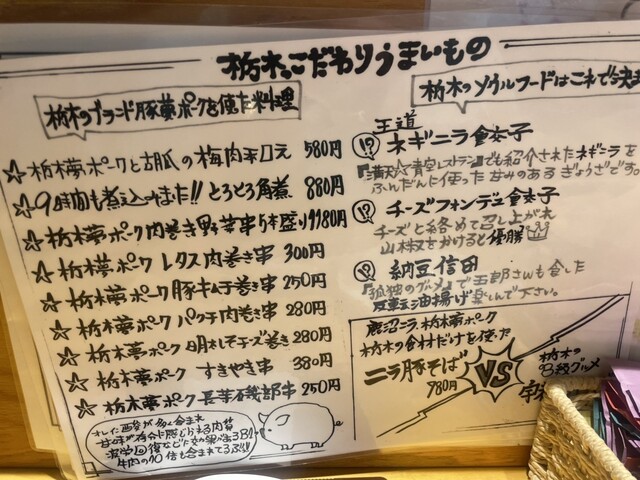 栃木のこだわりうまいもの
栃木のブランド豚夢ポークを使った料理
☆栃木夢ポークと胡瓜の梅肉和え 580円
☆9時間も煮込みました!!とろとろ角煮 880円
☆栃木夢ポーク肉巻き野菜串5本盛り1180円
☆栃木夢ポーク レタス肉巻き串 300円
☆栃木夢ポーク豚キムチ巻き串 250円
☆栃木夢ポーク パクチ肉巻き串 280円
☆栃木夢ポーク 明太しそチーズ巻き 280円
☆栃木夢ポーク すきやき串 380円
☆栃木夢ポーク長芋磯部串 250円
オレイン酸が多く含まれ
疲労回復などに効果がある
牛肉の10倍も含まれてる!!!
栃木のソウルフードはこれで決
王道
!?ネギニラ餃子
『満天☆青空レストラン』でも紹介されたネギニラを
ふんだんに使った甘みのあるぎょうざです。
!?チーズフォンデュ餃子
チーズと絡めて召し上がれ
山椒をかけると優勝
!?納豆信田
『孤独のグルメ』で五郎さんも食した
油揚げ楽しんで下さい。
鹿沼ニラ、栃木夢ポーク
栃木の食材だけを使った
ニラ豚そば
980円
VS
栃木の
B級グルメ
宇